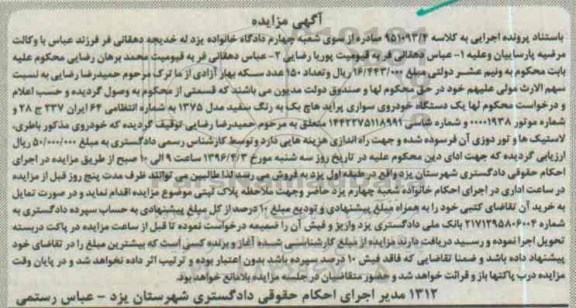 آگهی مزایده
باستناد پرونده اجرایی به کلاسه ۹۵۱۰۹۳/۴ صادره از سوی شعبه چهارم دادگاه خانواده یزد له خدیجه دهقانی فر فرزند عباس با وکالت
مرضیه پارسائیان وعلیه ۱- عباس دهقانی فر به قیومیت پوریا رضایی ۲- عباس دهقانی فر به قیومیت محمد برهان رضایی محکوم علیه
بابت محکوم به ونیم عشر دولتی مبلغ ۱۶/۴۴۳/۰۰۰ ریال وتعداد ۱۵۰ عدد سکه بهار آزادی از ما ترک مرحوم حمیدرضا رضایی به نسبت
سهم الارث مولی علیهم خود در حق محکوم لها و صندوق دولت مدیون می باشند که قسمتی از محکوم به وصول گردیده و حسب اعلام
و درخواست محکوم لها یک دستگاه خودروی سواری پراید هاچ بک به رنگ سفید مدل ۱۳۷۵ به شماره انتظامی ۶۴ ایران ۳۳۷ ج ۲۸ و
شماره موتور ۰۰۰۰۱۹۳۸ و شماره شاسی ۱۴۴۲۲۷۵۱۱۸۹۹۱ متعلق به مرحوم حمیدرضا رضایی توقیف گردیده که خودروی مذکور باطری،
لاستیک ها و تور دوزی آن فرسوده شده و جهت راه اندازی هزینه هایی دارد وتوسط کارشناس رسمی دادگستری به مبلغ ۵۰/۰۰۰/۰۰۰ ریال
ارزیابی گردیده که جهت ادای دین محکوم علیه در تاریخ روز سه شنبه مورخ ۱۳۹۶/۴/۳ ساعت ۹ الی ۱۰ صبح از طریق مزایده در اجرای
احکام حقوقی دادگستری شهرستان یزد واقع در طبقه اول یزد به فروش می رسد لذا طالبین می توانند ظرف مدت پنج روز قبل از مزایده
در ساعت اداری در اجرای احکام خانواده شعبه چهارم یزد حاضر وجهت ملاحظه پلاک ثبتی موضوع مزایده اقدام نماید و در صورت تمایل
به خرید آن تقاضای کتبی خود را به همراه مبلغ پیشنهادی و تودیع مبلغ ۱۰ درصد از کل مبلغ پیشنهادی به حساب سپرده دادگستری به
شماره ۲۱۷۱۲۹۵۸۰۶۰۰۴ بانک ملی دادگستری یزد واریز و فیش آن را ضمیمه درخواست نموده تا قبل از ساعت مزایده در پاکت دربسته
تحویل اجرا نموده و رسید دریافت دارند مزایده از مبلغ کارشناسی شده آغاز و برنده کسی است که بیشترین مبلغ را در تقاضای خود
پیشنهاد داده باشد و ضمنا تقاضایی که فاقد فیش ۱۰ درصد سپرده باشد بدون اعتبار بوده و ترتیب اثر داده نخواهد شد و در پایان وقت
مزایده درب پاکتها باز و قرائت خواهد شد و حضور متقاضیان در جلسه مزایده بلامانع خواهد بود.
۱۳۱۲ مدیر اجرای احکام حقوقی دادگستری شهرستان یزد - عباس رستمی